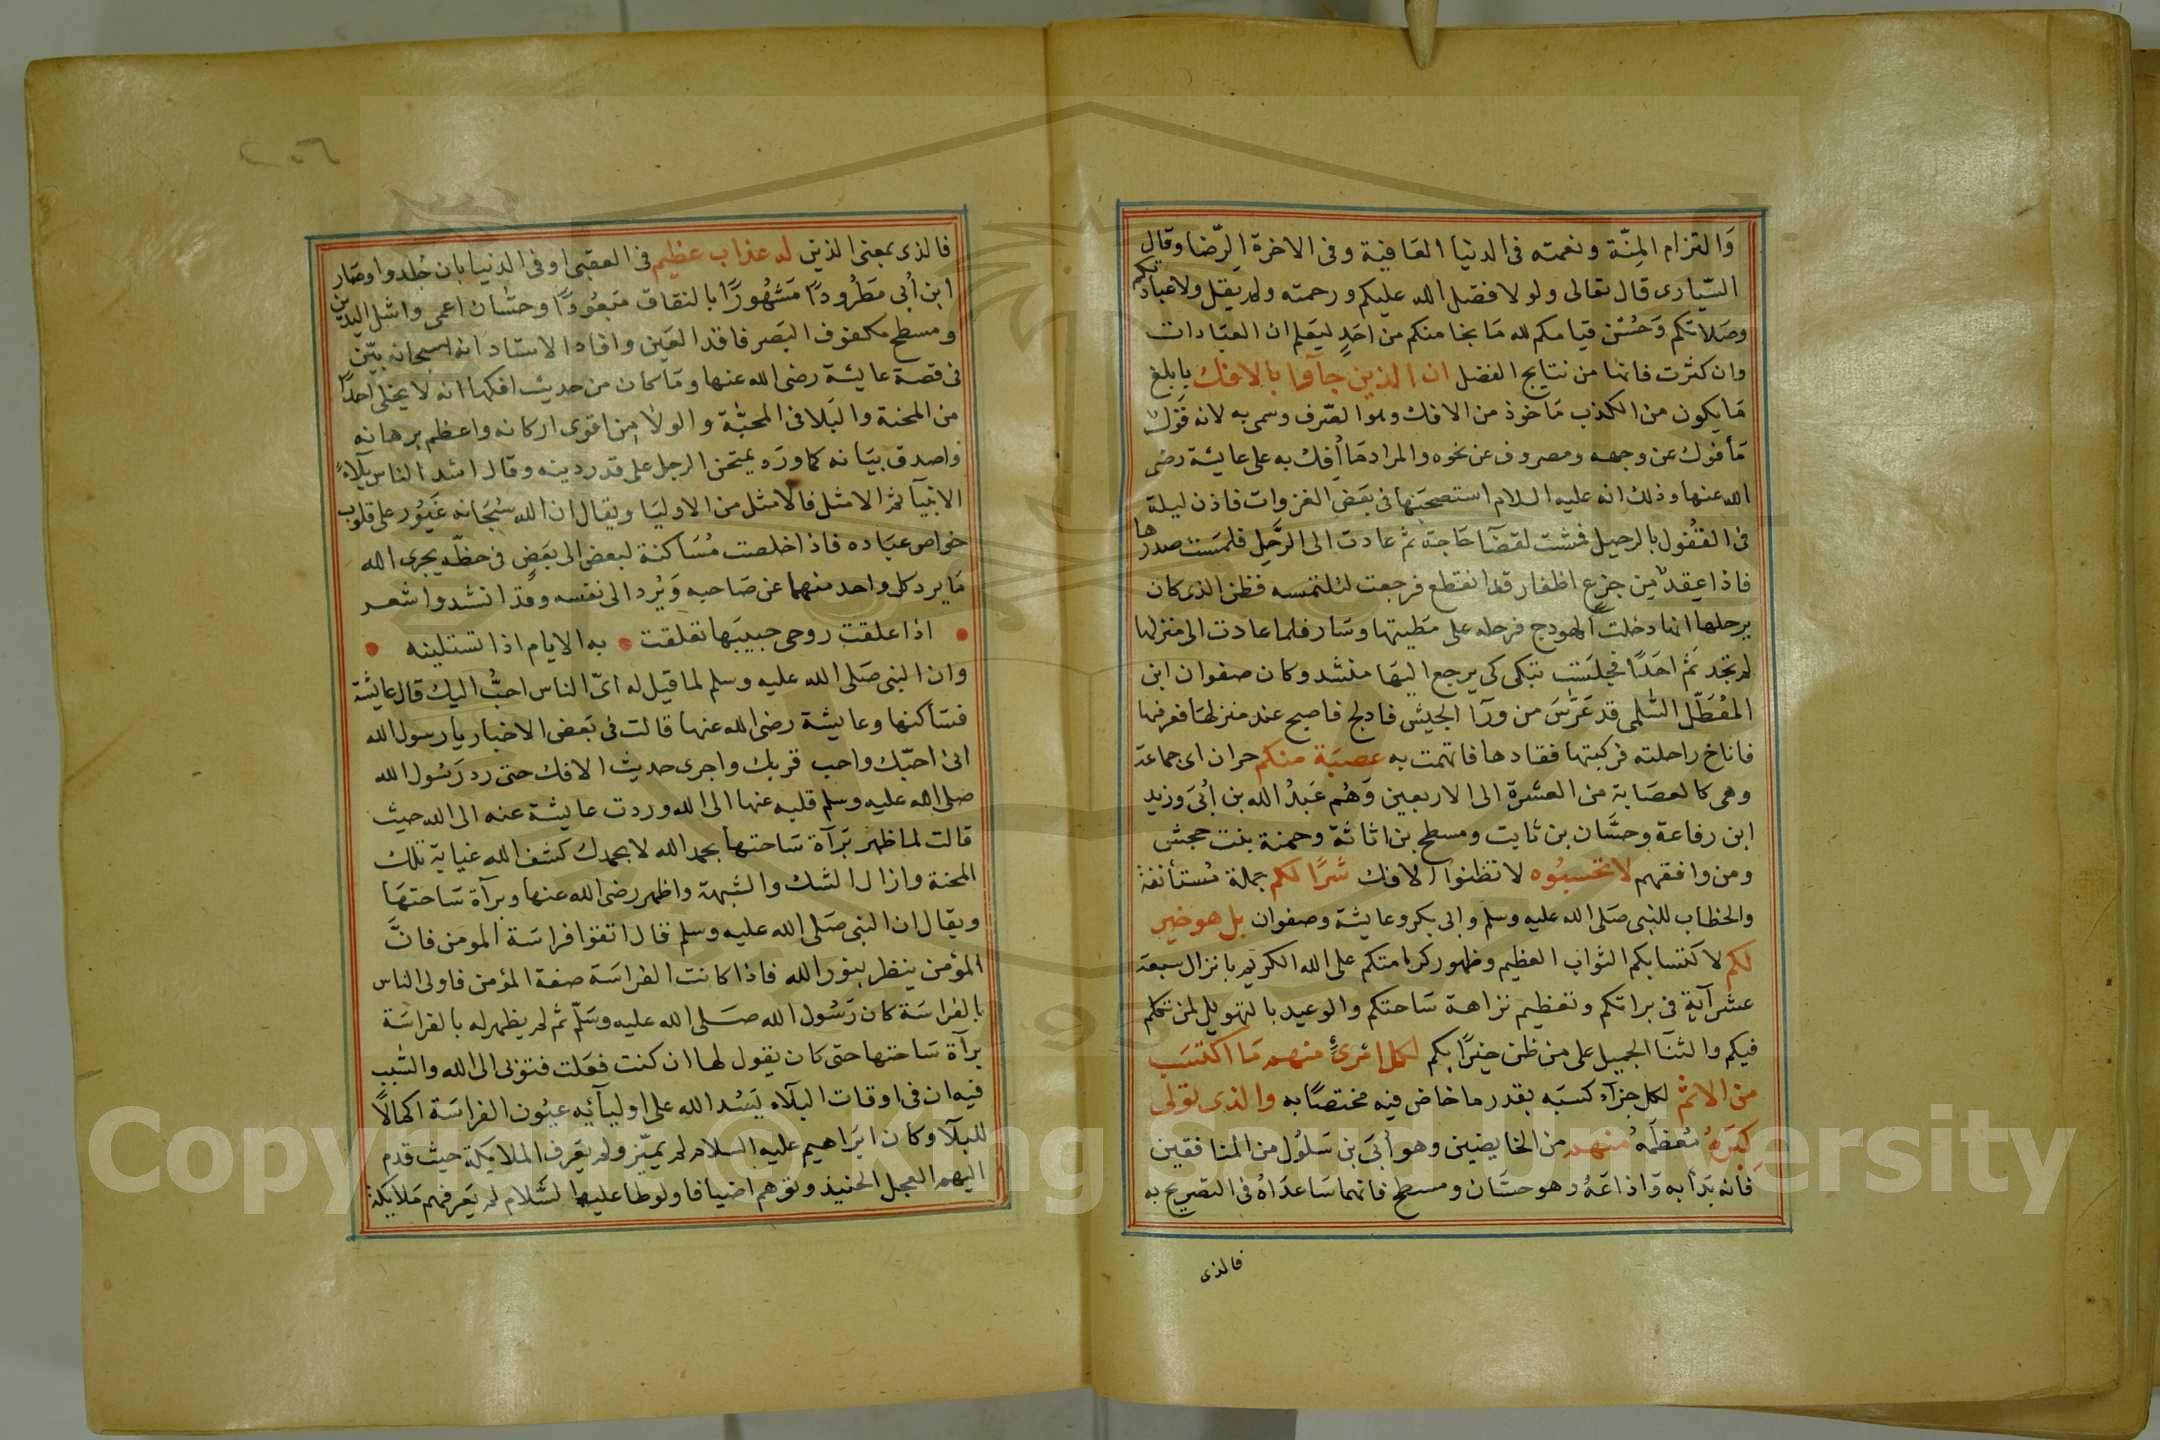 وَالتزام المِنّة ونعمته فى الدنيا العَافية وفى الاخرة الرّضا وقال
السّيارى قال تعالى ولولا فضل الله عليكم ورحمته ولم يقل ولاعبادتكم
وصَلاتكم وَحُسْن قيامكم لله مَا نجا منكم من احَدٍ ليَعلم ان العبَادات
وان كثرت فانها من نتايج الفضل ان الذين جآؤا بالافك بابلغ
مَا يكون من الكذب مَاخوذ من الافك وهو الصّرف وسمى به لانه قَولٌ
مَأفوك عن وجهه ومصروف عن نحوه والمراد مَا أُفك به على عايشة رضى
الله عنها وذلك انه عليه السلام استصحبَها فى بَعَض الغزوات فاذن ليلة
فى القفول بالرحيل فمشت لقضآ حَاجة ثم عادت الى الرَّحِل فلمسَت صدرها
فاذا عِقدٌ مِن جزع اظفار قد انقطع فرجعت لتلتمسه فظن الذى كان
يرحلها انها دخلت الهودج فرحله على مَطيتها وسَار فلما عادت الى منزلها
لم تجد ثَمّ احَدًا فجلسَت تبكى كى يرجع اليهَا منشد وكان صفوان ابن
المُعَطّل السّلمى قد عَرَّسَ من ورآ الجيش فادلج فاصبح عند منزلهَا فعرفها
فاناخ راحلته فركبتها فقادها فاتهمت به عصبَة منكم خبر ان اى جماعة
وهى كالعصَابة من العشرة الى الاربعين وَهُم عَبدُ الله بن اُبَىّ وَزيد
ابن رفاعة وحسَّان بن ثابت ومسطح بن اثاثة وحمنة بنت جحش
ومن وافقهم لا تحسبُوه لا تظنوا الافك شرًا لكم جملة مُستأنفة
والخطاب للنبى صَلى الله عليه وسلم وابى بكر وعايشة وصفوان بل هو خير
لكم لاكتسابكم الثوَاب العظيم وظهور كرامتكم على الله الكريم بانزال سبعة
عشر آية فى براتكم وتعظيم نزاهة سَاحتكم والوعيد بالتهويل لمن تكلم
فيكم والثنآ الجميل على من ظن خيرًا بكم لكل امْرئٍ منهم مَا اكتسَبَ
من الاثم لكل جزآء كسبَه بقدر ما خاض فيه مختصًا به والذى تولى
كِبرَهُ مُعظمَهُ منهم من الخايضين وهو أبَى بن سَلُول من المنافقين
فانه بَدأ به وَاذاعَهُ وهو حسَّان ومسطح فانهما سَاعدَاهُ فى التصريح به
فالذى
فالذى بمعنى الذين له عذاب عظيم فى العقبى او فى الدنيا بان جُلدوا وصَار
ابن اُبى مَطرُودًا مَشهُورًا بالنفاق مَبعُودًا وحسَّان اعمى واشل اليدين
ومسطح مكفوف البَصر فاقد العَين وافاد الاستاد انه سبحانه بيّن
فى قصة عايشة رضى الله عنها ومَا كان من حديث افكها انه لا يخلى احدًا
من المحنة والبَلا فى المحبّة والولآ من اقوى اركانه واعظم برهانه
واصدق بيَانه كما ورَد يمتحن الرجل على قدر دينه وقال اشد الناس بلآءً
الانبيآ ثم الامثل فالامثل من الاوليَا ويقال ان الله سُبحَانه غَيُور على قلوب
خواص عبَاده فاذا اخلصت مُسَاكنة لبعض الى بَعَضٍ فى حظّه يجرى الله
مَا يرد كل واحد منهما عن صَاحبه وَيُرد الى نفسه وقد انشدوا شعر
اذا علقت روحى حبيبَها تعلقت به الايام اذا تستلينه
وان النبى صَلى الله عليه وسلم لما قيل له اىّ الناس احبُّ اليك قال عايشة
فسَأكنها وعايشة رضى الله عنها قالت فى بَعَض الاخبار يا رسول الله
انى احبّك واحب قربك واجرى حديث الافك حتى رد رَسُول الله
صلى الله عليه وسلم قلبه عنها الى الله وردت عايشة عنه الى الله حيث
قالت لما ظهر بَرآة سَاحتها بحمد الله لا بحمدك كشف الله غيابة تلك
المحنة وازال الشك والشبهة واظهر رضى الله عنها وبرآة سَاحتهَا
ويقال ان النبى صَلى الله عليه وسلم قال اتقوا فراسَة المومن فانَّ
المؤمن ينظر بنور الله فاذا كانت الفراسَة صفة المؤمن فاولى الناس
بالفراسَة كان رَسُول الله صَلى الله عليه وسَلّم ثم لم يظهر له بالفراسَة
برآة سَاحتها حتى كان يقول لها ان كنت فعَلت فتوبى الى الله والسّبب
فيه ان فى اوقات البلآء يَسُد الله على اوليآئه عيُون الفراسَة اكمالًا
للبلآ وكان ابرَاهيم عليه السلام لم يميّز ولم يعَرف الملايكة حيث قدم
اليهم العجل الحنيذ وتوهم اضيافا ولوطا عليه السَّلام لم يَعرفهم مَلايكة